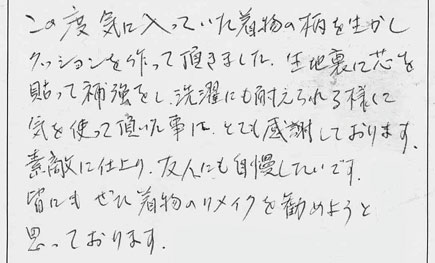 この度気に入っていた着物の柄を生かし
クッションを作って頂きました。生地裏に芯を
貼って補強をし、洗濯にも耐えられる様に
気を使って頂いた事は、とても感謝しております。
素敵に仕上り、友人にも自慢したいです。
皆にも ぜひ着物のリメイクを勧めようと
思っております。